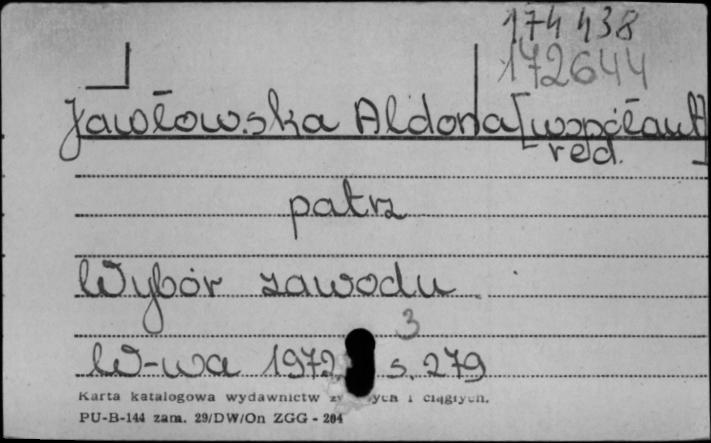 174 438
172644
Jawłowska Aldona [współaut]
red.
patrz
Wybór zawodu
3
W-wa 1972, s. 279
Karta katalogowa wydawnictw i ciągłych.
PU-B-144 zam. 29/DW/On ZGG - 204